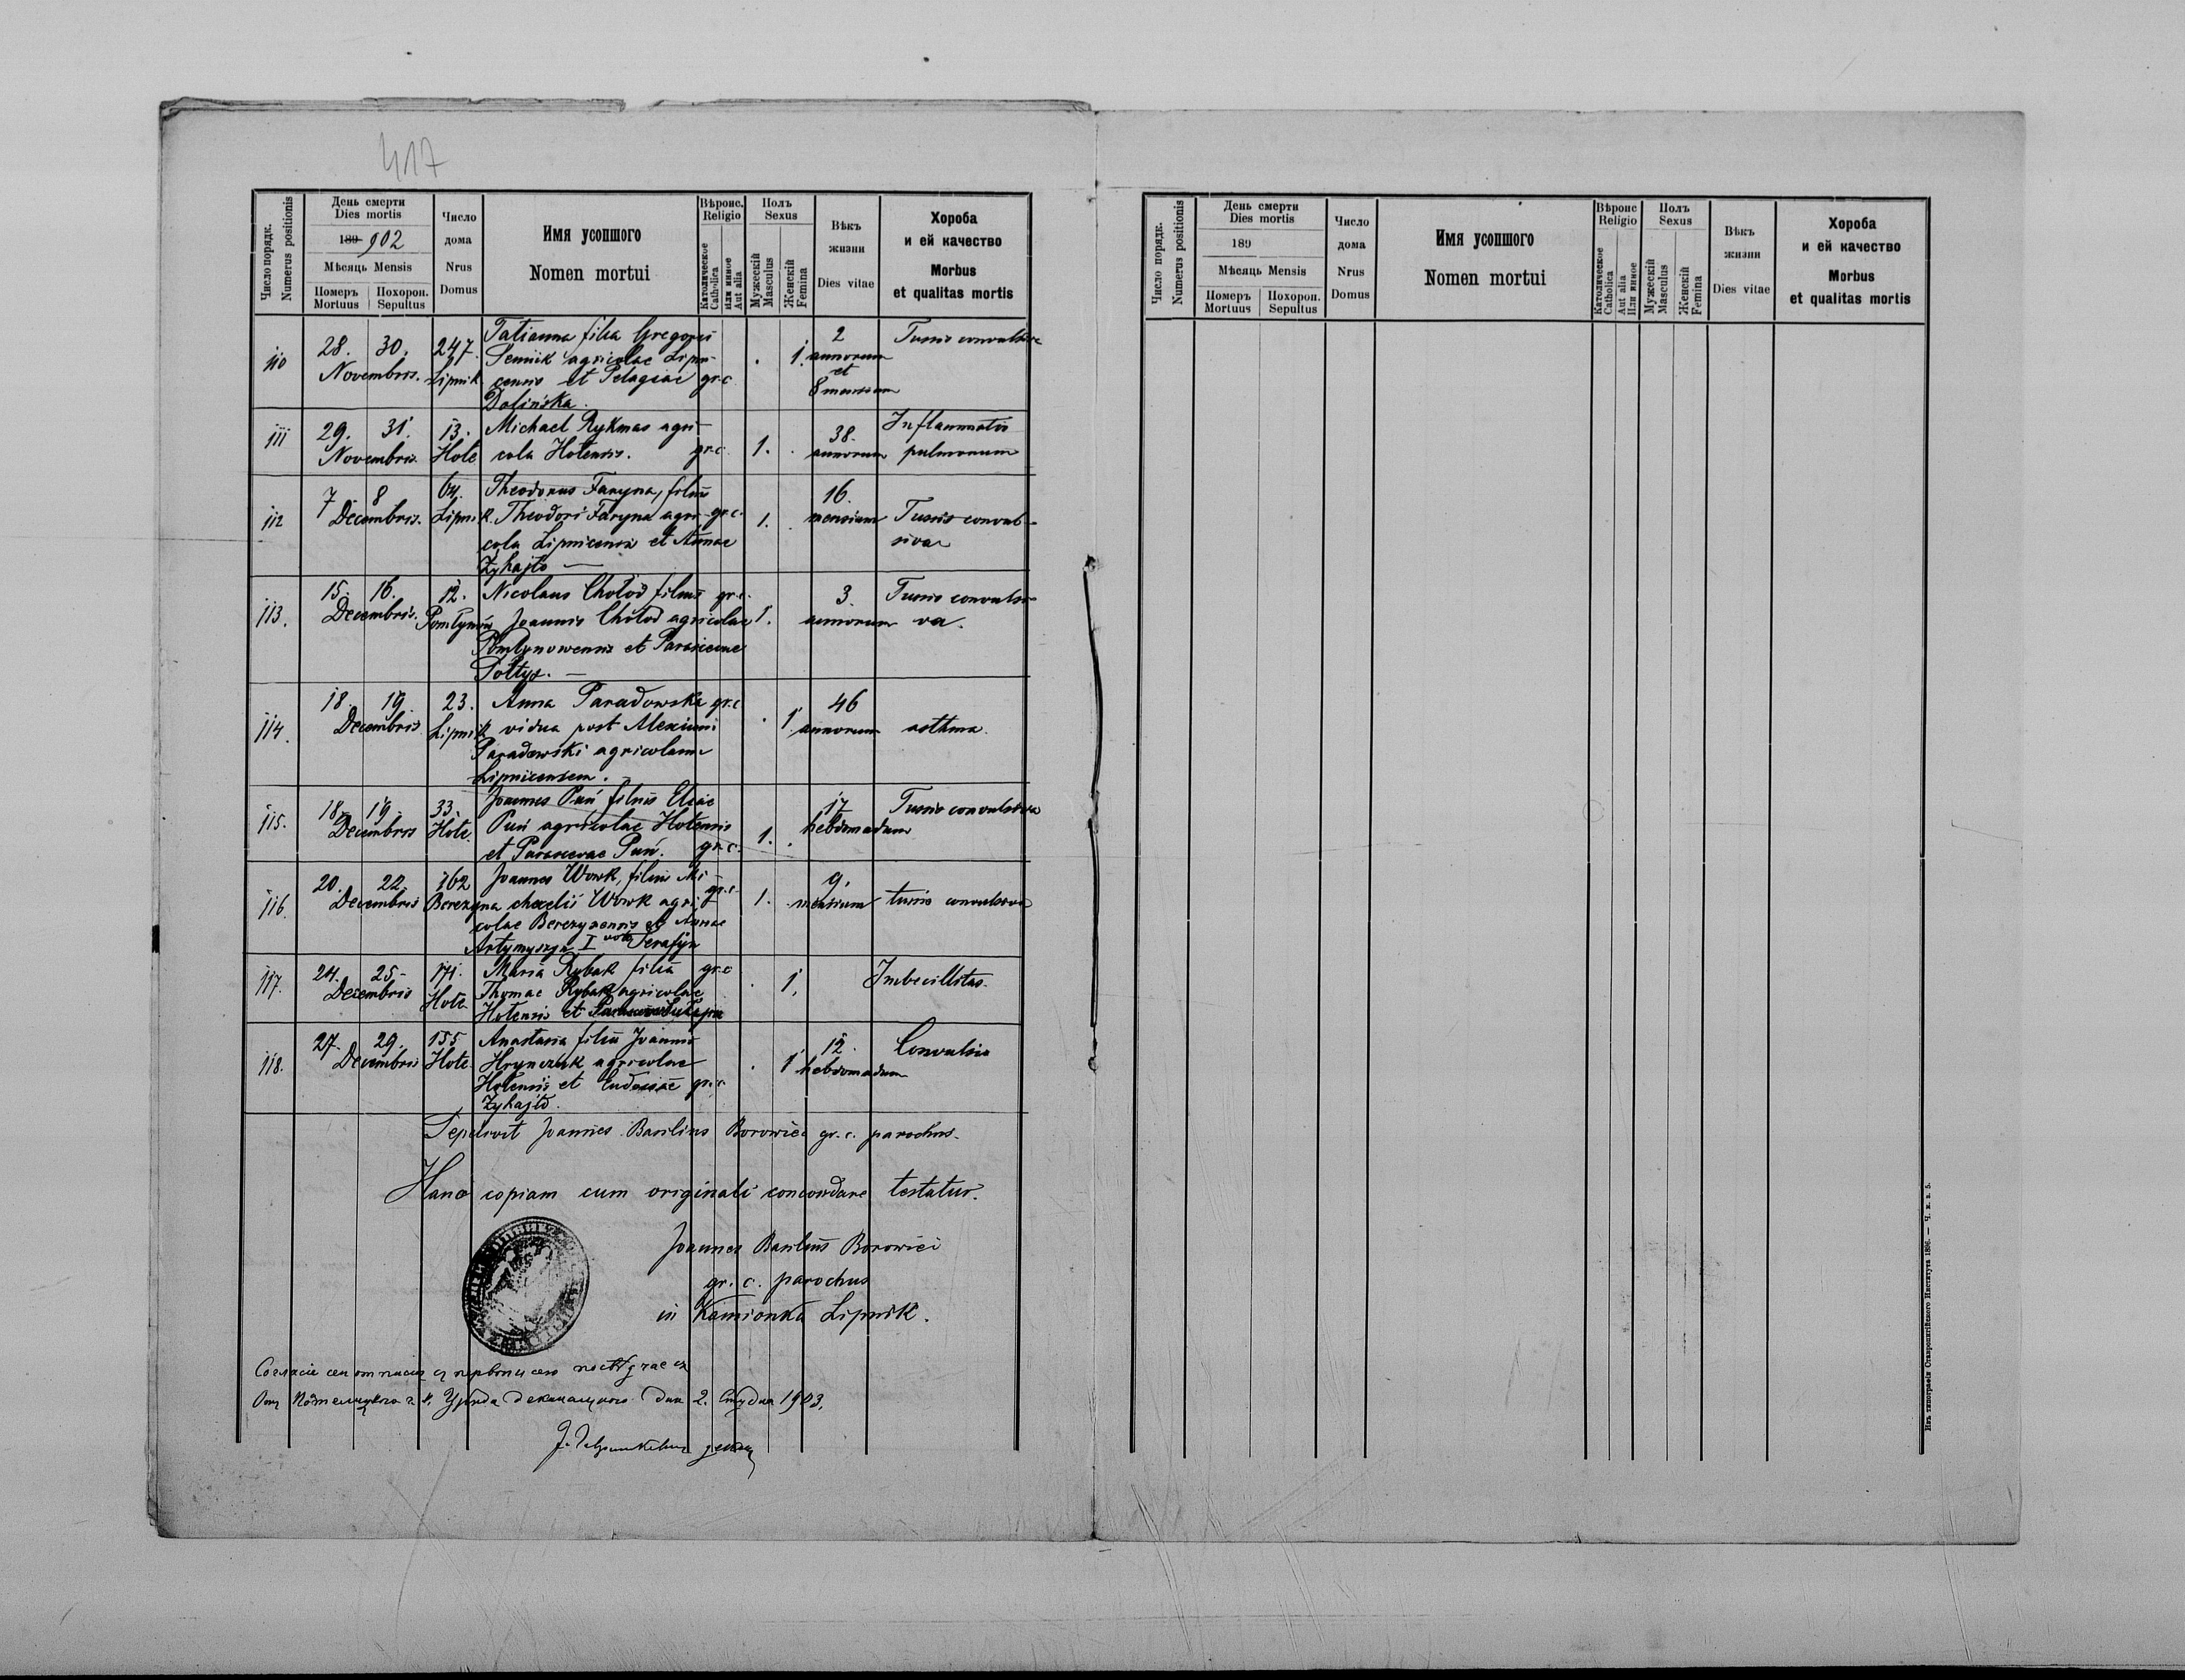 417
Число порядк.
Numerus positionis
День смерти
Dies mortis
189 902
Мѣсяць Mensis
Померъ
Mortuus
Похорон.
Sepultus
Число
дома
Nrus
Domus
Имя усопшого
Nomen mortui
Вѣроис.
Religio
Католическое
Catholica
Или инное
Aut alia
Полъ
Sexus
Мужескій
Masculus
Женскій
Femina
Вѣкъ
жизни
Dies vitae
Хороба
и ей качество
Morbus
et qualitas mortis
110
28. 30.
Novembris.
247.
Lipnik
Tatianna filia Gregorii
Semiik agricolae Lipni-
censis et Pelagiae
Dolińska.
gr.c.
1.
2
annorum
et
8 mensium
Tussis convulsiva
111
29. 31.
Novembris.
13.
Hole
Michael Rykmas agri-
cola Holensis.
gr.c.
1.
38.
annorum
Inflammatio
pulmonum
112
7. 8
Decembris.
64.
Lipnik.
Theodorus Faryna, filius
Theodori Faryna agri-
cola Lipnicensis et Annae
Zyhajło —
gr.c.
1.
16.
mensium
Tussis convul-
siva
113.
15. 16.
Decembris.
12.
Nicolaus Chołod filius
Joannis Chołod agricolae
Pomłynowensis et Parascevae
gr.c.
1.
3.
annorum
Tussis convulsi-
va.
114.
18. 19.
Decembris
23.
Lipnik
Anna Paradowska
vidua post Alexium
Paradowski agricolam
Lipnicensem.
gr.c
1
46
annorum
asthma.
115.
18. 19.
Decembris
33.
Hole.
Joannes Puń filius Eliae
Puń agricolae Holensis
et Parascevae Puń.
gr.c.
1.
17
hebdomadum
Tussis convulsiva
116.
20. 22.
Decembris
162
Berezyna
Joannes Wowk, filius Mi-
chaelis Wowk agri-
colae Berezynensis et Annae
Artymyszyn I voto Serafyn
gr.c.
1.
9.
mensium
tussis convulsiva
117.
24. 25.
Decembris
171.
Hole
Maria Rybak filia
Thomae Rybak agricolae
Holensis et
gr.c
1.
Imbecillitas.
118.
27. 29.
Decembris
155
Hole.
Anastasia filia Joannis
Hrynczuk agricolae
Holensis et Eudociae
Zyhajło.
gr.c.
1
12.
hebdomadum
Convulsio
Sepelivit Joannes Basilius Borowiec gr. c. parochus.
Hanc copiam cum originali concordare testatur.
Joannes Basilius Borowiec
gr. c. parochus
in Kamionka Lipnik.
дня 2. Студня 1903.
Число порядк.
Numerus positionis
День смерти
Dies mortis
189
Мѣсяць Mensis
Померъ
Mortuus
Похорон.
Sepultus
Число
дома
Nrus
Domus
Имя усопшого
Nomen mortui
Вѣроис
Religio
Католическое
Catholica
Aut alia
Или инное
Полъ
Sexus
Мужескій
Masculus
Женскій
Femina
Вѣкъ
жизни
Dies vitae
Хороба
и ей качество
Morbus
et qualitas mortis
Изъ типографіи Ставропигійского Института 1896. — Ч. к. в. 5.